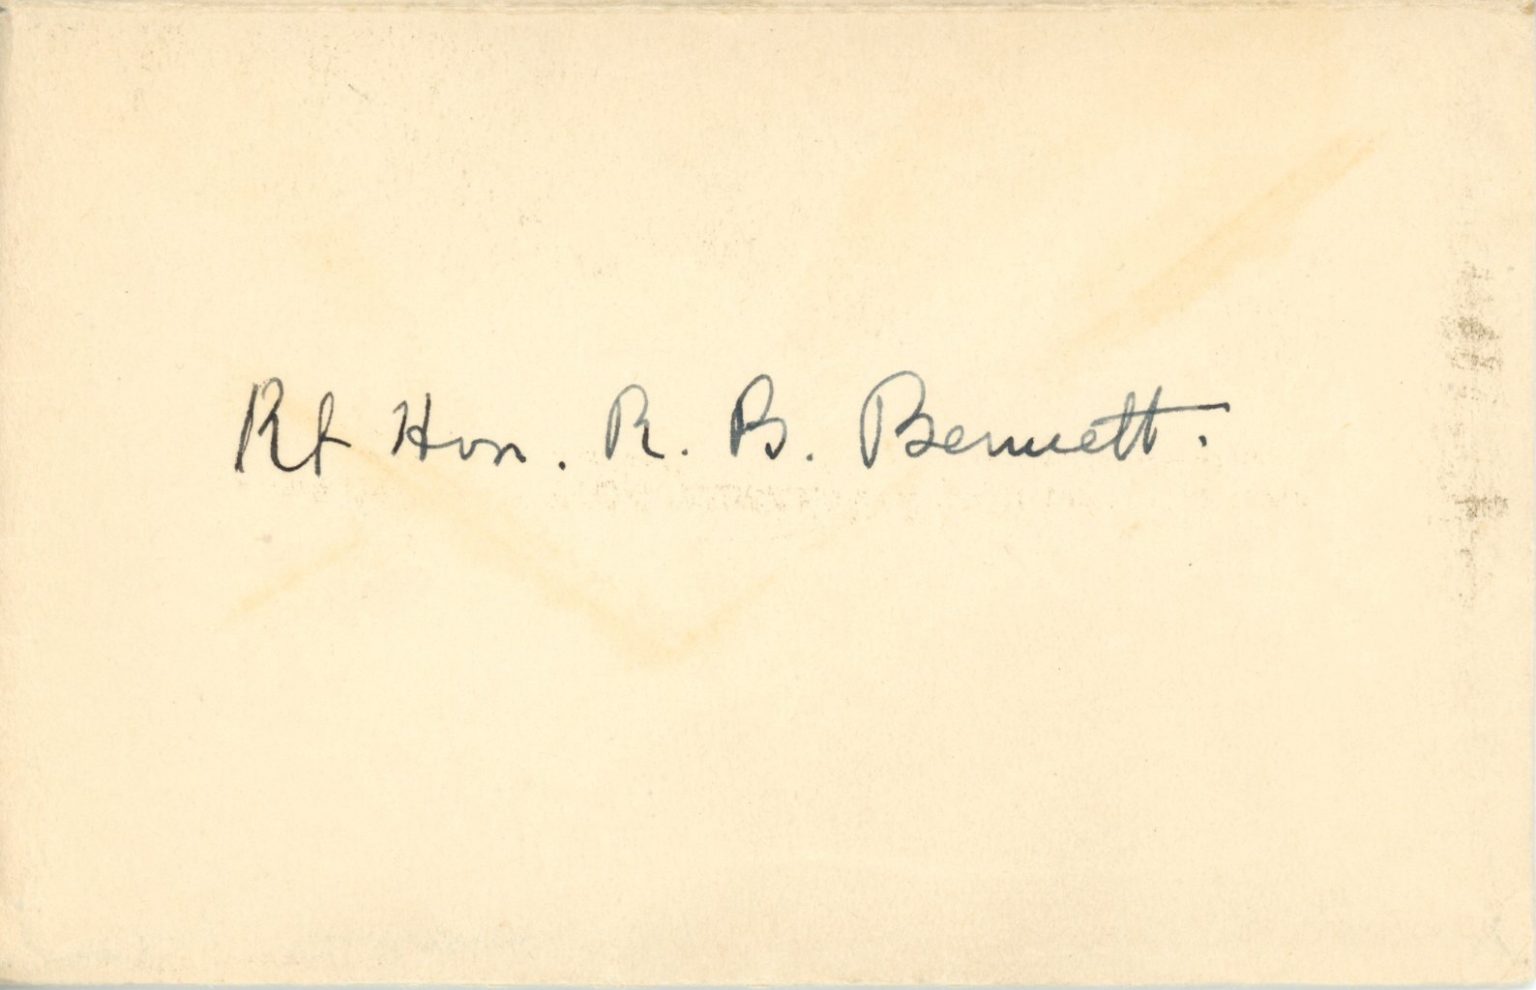 Rt Hon. R. B. Bennett.